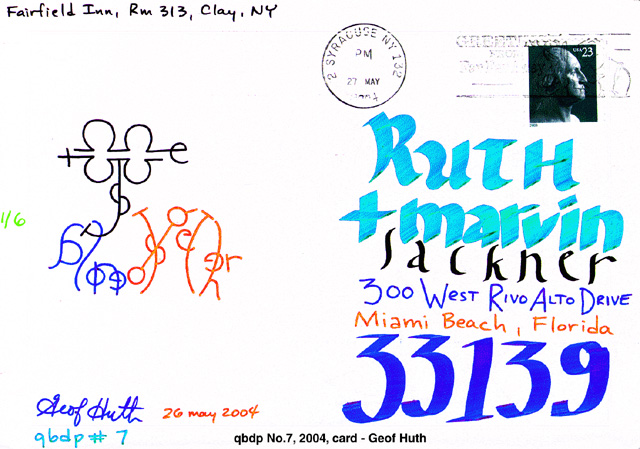 Fairfield Inn, Rm 313, Clay, NY
2 SYRACUSE NY 132
PM
27 MAY
2004
USA 23
Ruth
+ marvin
Sackner
300 West Rivo Alto Drive
Miami Beach, Florida
33139
1/6
Geof Huth 26 may 2004
qbdp # 7
qbdp No.7, 2004, card - Geof Huth